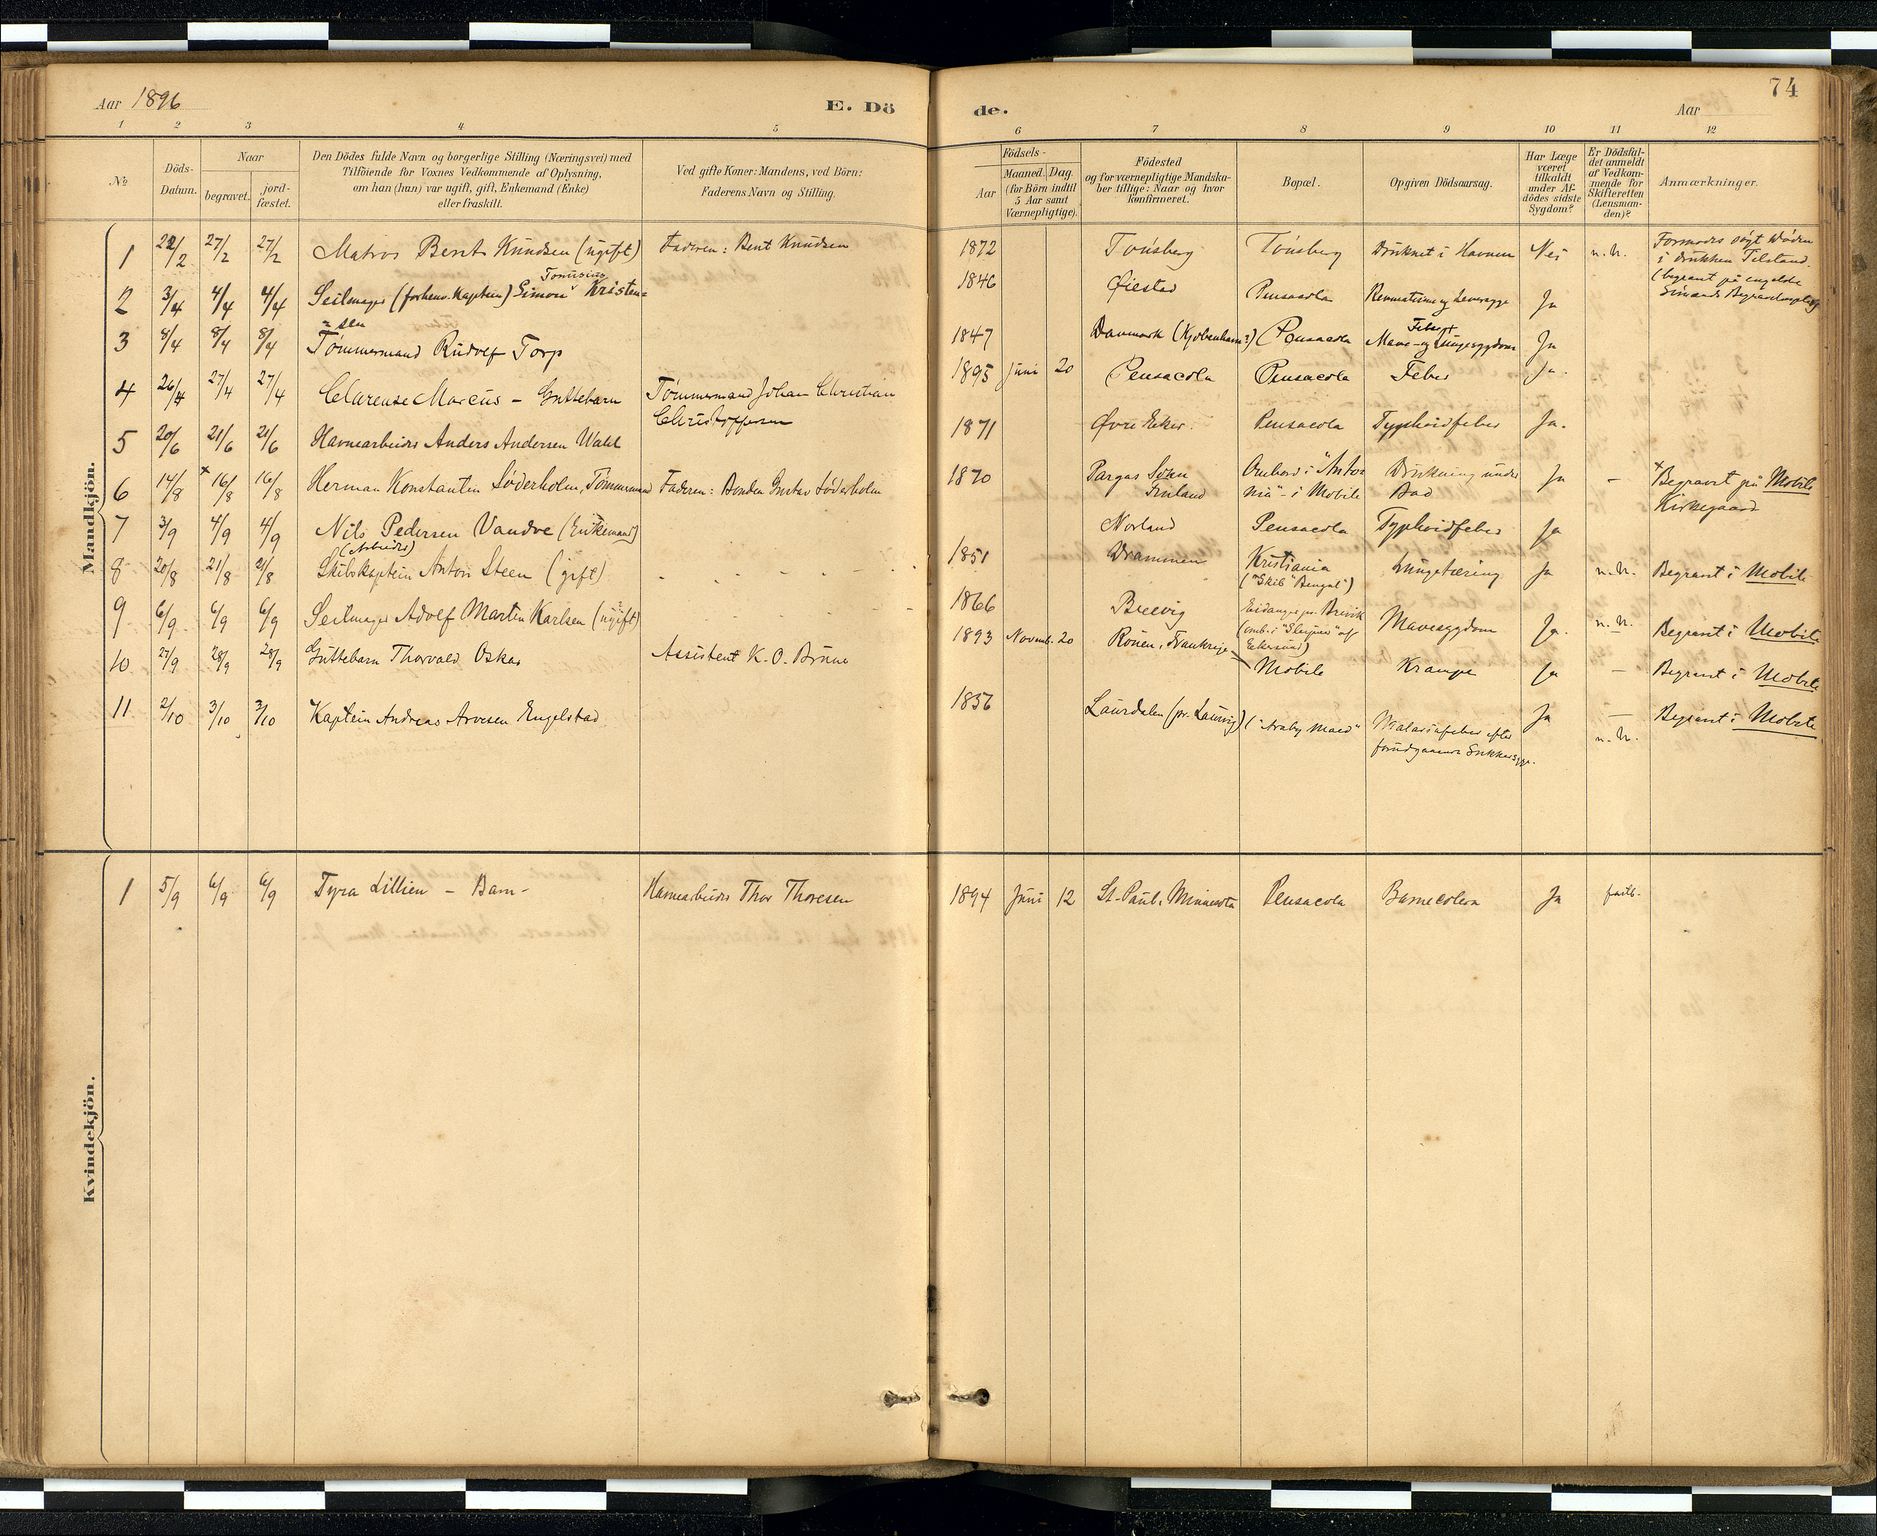 Aar 1896 E. Dö
1 2 3 4 5
№ Döds-Datum. Naar begravet. jordfæstet. Den Dödes fulde Navn og borgerlige Stilling (Næringsvei) med Tilföiende for Voxnes Vedkommende af Oplysning, om han (hun) var ugift, gift, Enkemand (Enke) eller fraskilt. Ved gifte Koner: Mandens, ved Börn: Faderens Navn og Stilling.
Mandkjön.
1 22/2 27/2 27/2 Matros Bernt Knudsen (ugift) Faderen: Bent Knudsen
2 3/4 4/4 4/4 Seilmager (forhenv. Kaptein) Simon Kristen=
=sen
3 8/4 8/4 8/4 Tømmermand Rudolf Torp
4 26/4 27/4 27/4 Clarense Marcus - Guttebarn Tømmermand Johan Christian
Christoffersen
5 20/6 21/6 21/6 Havnearbeider Anders Andersen Wahl
6 14/8 x 16/8 16/8 Herman Konstantin Søderholm, Tømmermand Faderen: Bonden Gustav Søderholm
7 3/9 4/9 4/9 Nils Pedersen Vandve (Enkemand)
(Arbeider)
8 20/8 21/8 21/8 Skibskaptein Anton Steen (gift)
9 6/9 6/9 6/9 Seilmager Adolf Martin Karlsen (ugift)
10 27/9 28/9 28/9 Guttebarn Thorvald Oskar Assistent K. O. Brune
11 2/10 3/10 3/10 Kaptein Andreas Arvesen Engelstad
Kvindekjön.
1 5/9 6/9 6/9 Tyra Lillien - Barn - Havnearbeider Thor Thoresen
74
de. Aar
6 7 8 9 10 11 12
Födsels-
Aar Maaned. Dag. (for Börn indtil 5 Aar samt Værnepligtige). Födested og for værnepligtige Mandskaber tillige: Naar og hvor konfirmeret. Bopæl. Opgiven Dödsaarsag. Har Læge været tilkaldt under Afdödes sidste Sygdom? Er Dödsfaldet anmeldt af Vedkommende for Skifteretten (Lensmanden)? Anmærkninger.
1872 Tønsberg Tønsberg Druknet i Havnen Nei n. n. Formodes søgt Døden
i drukken Tilstand.
(begravet på engelske
Sømænds Begravelsesplads)
1846 Øiestad Pensacola Reumatisme og Leversyge Ja
1847 Danmark (Kjøbenhavn?) Pensacola Mave- og Lungesygdom Ja
1895 Juni 20 Pensacola Pensacola Feber Ja.
1871 Øvre Eker. Pensacola Typhoidfeber Ja.
1870 Pargas Sokn Ombord i "Anto Drukning under Ja - x Begravet på Mobile
Finland nia" - i Mobile Bad Kirkegaard
Norland Pensacola Typhoidfeber Ja
1851 Drammen Kristiania Lungetæring Ja n. n. Begravet i Mobile
(Skib "Bengal")
1866 Brevig Eidanger pr. Brevik Mavesygdom Ja. n. n. Begravet i Mobile
(omb. i "Sleipner" af
Ekersund)
1893 Novemb. 20 Rouen, Frankrige - Mobile Krampe Ja - Begravet i Mobile
1856 Laurdalen (pr. Laurvig) ("Araby Maid" Malariafeber efter Ja - Begravet i Mobile
forudgaaende Sukkersyge. n. n.
1894 Juni 12 St. Paul, Minnesota Pensacola Barnecolera Ja